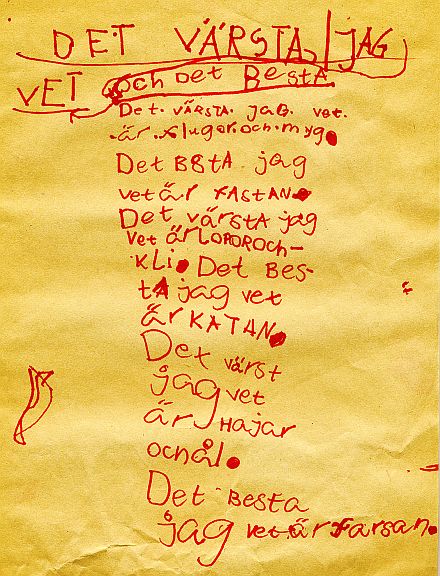 DET VÄRSTA JAG
VET och Det BestA
Det. VÄRSTA. jAG. vet.
är. flugor.och.myg.
Det BEstA jag
vet är FASTAN.
Det värstA jag
vet är LOPOROCH-
KLi. Det BES-
tA jag vet
är KATAN.
Det värst
jag vet
är HAjar
ochål.
Det Besta
jag vet är farsan.